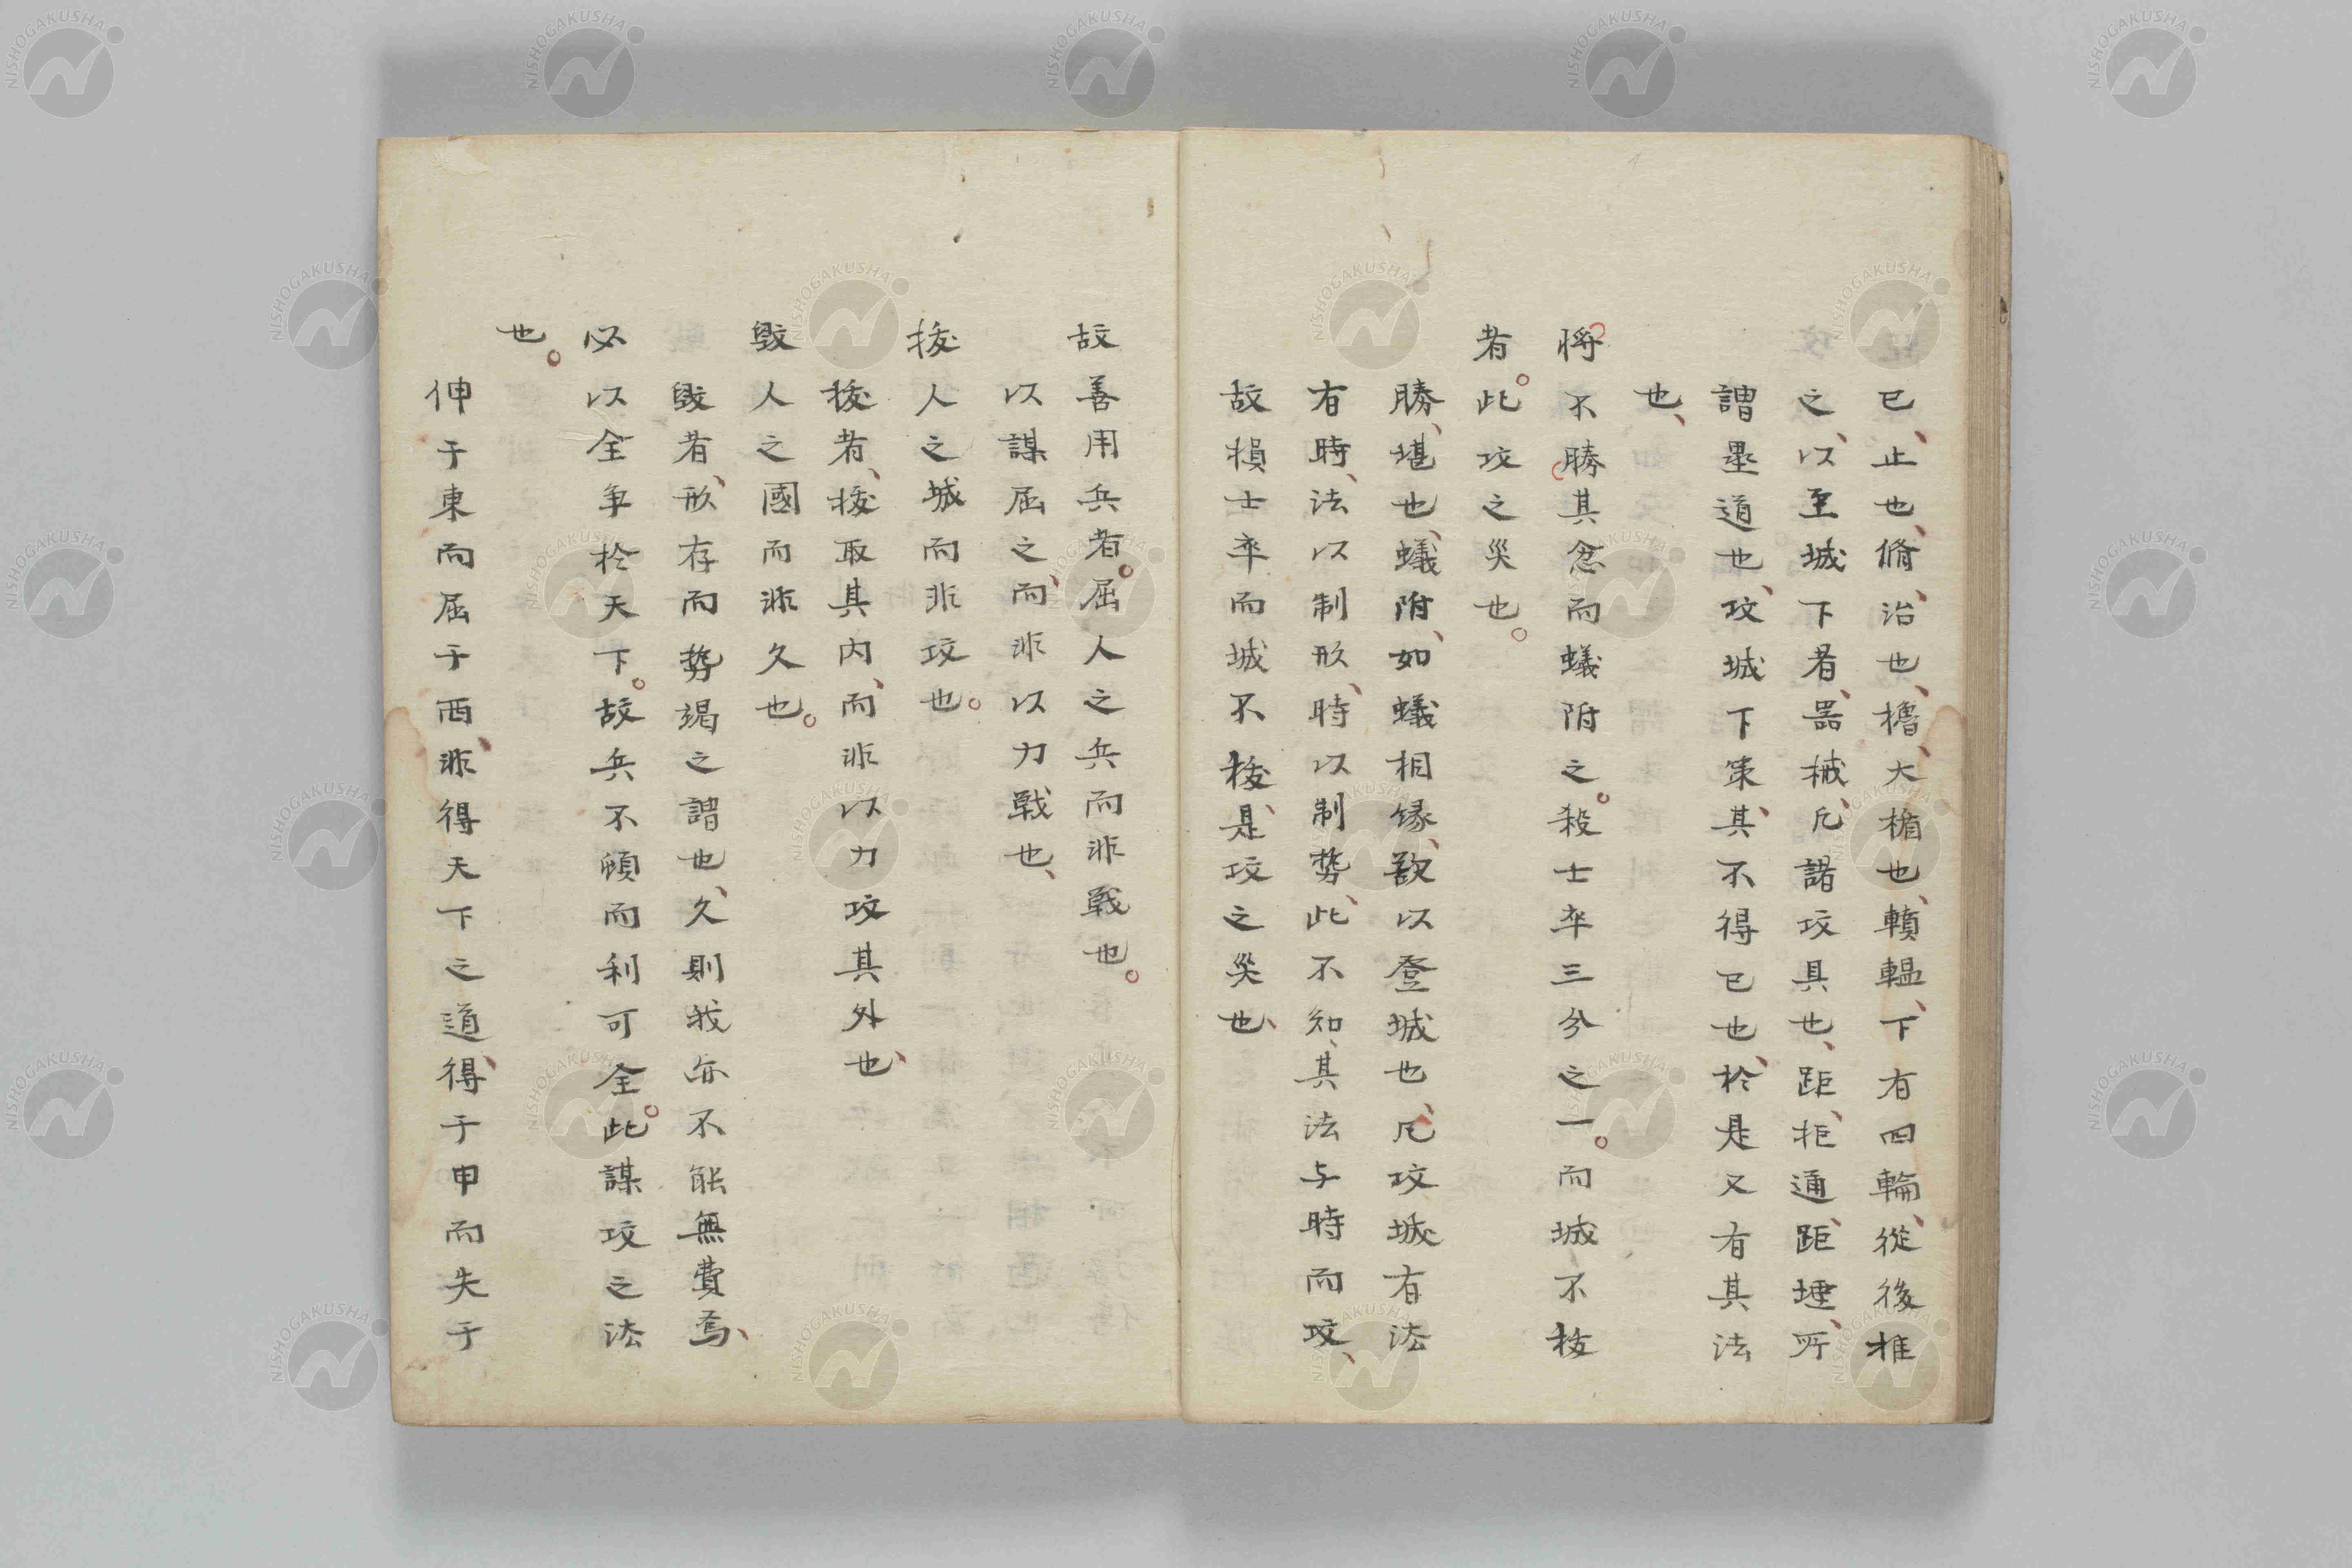 已、止也、脩、治也、櫓、大楯也、轒轀、下有四輪、從後推
之、以至城下者、器械、凡諸攻具也、距、拒通、距堙、所
謂壘道也、攻城下策、其不得已也、於是又有其法
也、
將不勝其忿而蟻附之。殺士卒三分之一。而城不拔
者。此攻之災也。
勝、堪也、蟻附、如蟻相縁、歙以登城也、凡攻城有法
有時、法以制形、時以制勢、此不知其法与時而攻、
故損士卒而城不拔、是攻之災也、
故善用兵者。屈人之兵而非戰也。
以謀屈之、而非以力戰也、
拔人之城而非攻也。
拔者、拔取其内、而非以力攻其外也、
毀人之國而非久也。
毀者、形存而勢竭之謂也、久則我亦不能無費焉、
必以全争於天下。故兵不頓而利可全。此謀攻之法
也。
伸于東而屈于西、非得天下之道、得于甲而失于
NISHOGAKUSHA